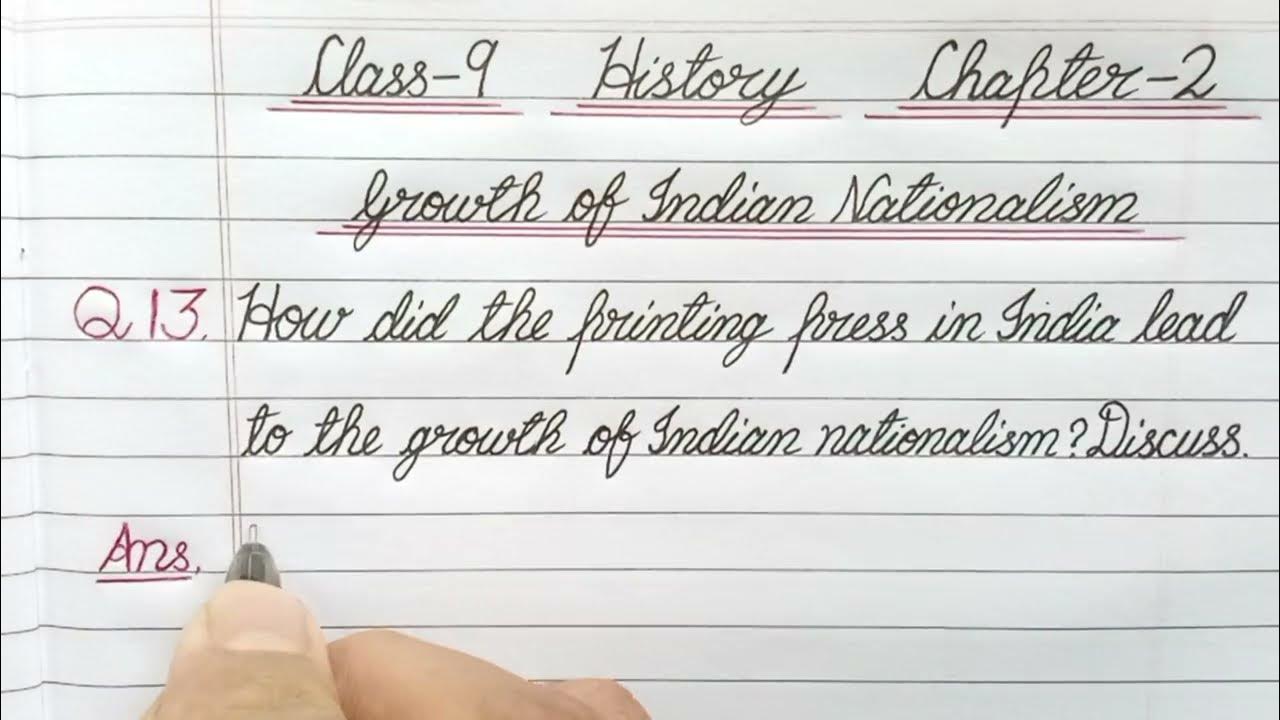 Class-9 History Chapter-2
Growth of Indian Nationalism
Q 13. How did the printing press in India lead
to the growth of Indian nationalism? Discuss.
Ans.